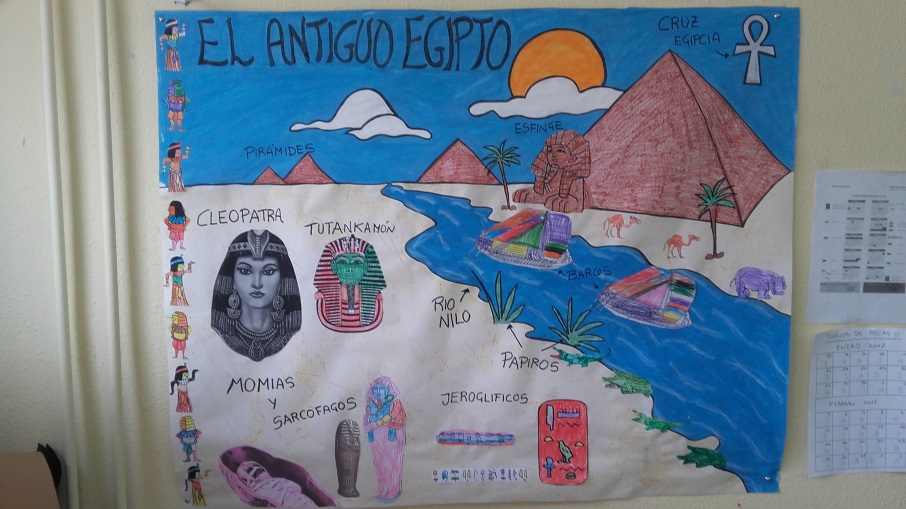 EL ANTIGUO EGIPTO
CRUZ
EGIPCIA
ESFINGE
PIRÁMIDES
CLEOPATRA
TUTANKAMÓN
BARCOS
RIO
NILO
PAPIROS
MOMIAS
Y
SARCOFAGOS
JEROGLIFICOS